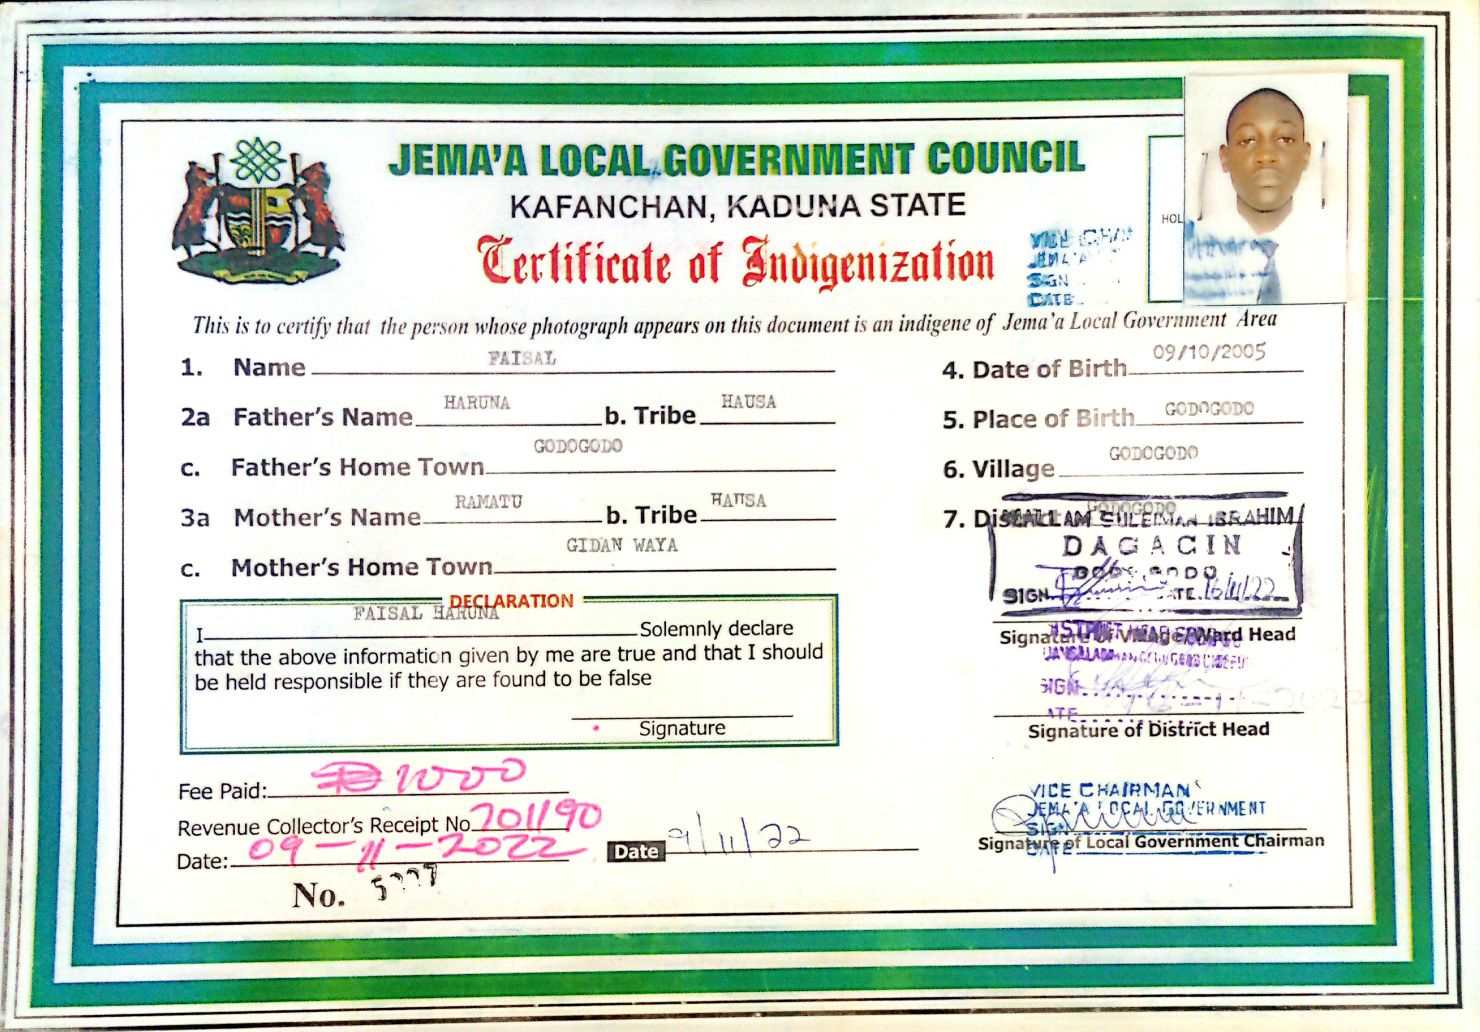 JEMA'A LOCAL GOVERNMENT COUNCIL
KAFANCHAN, KADUNA STATE
Certificate of Indigenization
HOL
VICE CHAI
JEMA'A
SIGN
DATE
This is to certify that the person whose photograph appears on this document is an indigene of Jema'a Local Government Area
1. Name FAISAL
2a Father's Name HARUNA b. Tribe HAUSA
c. Father's Home Town GODOGODO
3a Mother's Name RAMATU b. Tribe HAUSA
c. Mother's Home Town GIDAN WAYA
4. Date of Birth 09/10/2005
5. Place of Birth GODOGODO
6. Village GODOGODO
7. District GODOGODO
MALLAM SULEIMAN IBRAHIM
DAGACIN
GODOGODO
SIGN DATE 16/11/22
Signature of Village/Ward Head
DISTRICT HEAD
SIGN
DATE
Signature of District Head
DECLARATION
I FAISAL HARUNA Solemnly declare
that the above information given by me are true and that I should
be held responsible if they are found to be false
Signature
Fee Paid: ₦1000
Revenue Collector's Receipt No 701190
Date: 09-11-2022
Date 9/11/22
No.
VICE CHAIRMAN
JEMA'A LOCAL GOVERNMENT
SIGN
DATE
Signature of Local Government Chairman